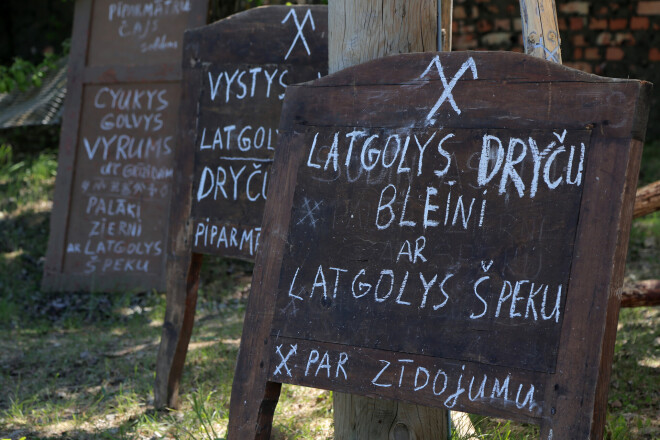 PIPARMĒTRU
ČAJS
CYUKYS
GOLVYS
VYRUMS
PALĀKI
ZIERNI
AR LATGOLYS
ŠPEKU
VYSTYS
LATGOLY
DRYČU
PIPARMĀ
LATGOLYS DRYČU
BLEINI
AR
LATGOLYS ŠPEKU
PAR ZĪDOJUMU